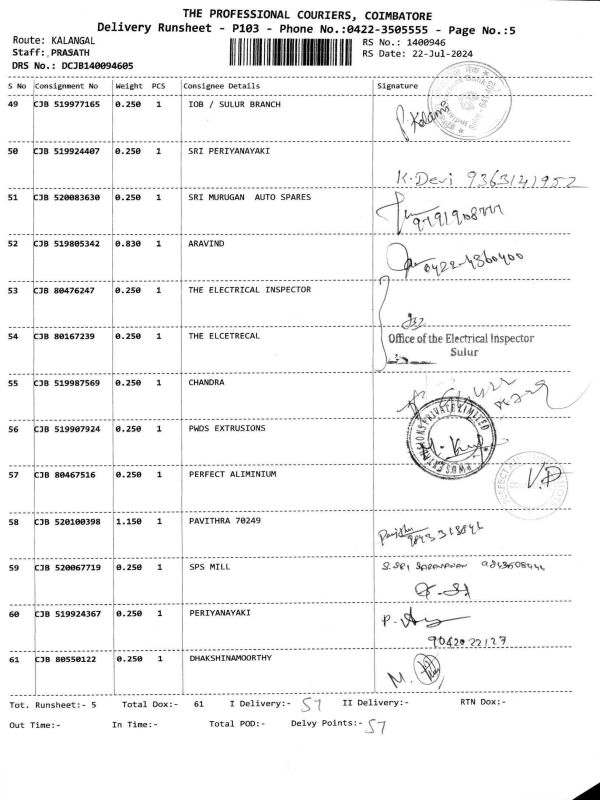 THE PROFESSIONAL COURIERS, COIMBATORE
Delivery Runsheet - P103 - Phone No.:0422-3505555 - Page No.:5
Route: KALANGAL
Staff: PRASATH
DRS No.: DCJB140094605
RS No.: 1400946
RS Date: 22-Jul-2024
S No Consignment No Weight PCS Consignee Details Signature
49 CJB 519977165 0.250 1 IOB / SULUR BRANCH
50 CJB 519924407 0.250 1 SRI PERIYANAYAKI K.Devi 9363141952
51 CJB 520083630 0.250 1 SRI MURUGAN AUTO SPARES
52 CJB 519805342 0.830 1 ARAVIND 0422-4360400
53 CJB 80476247 0.250 1 THE ELECTRICAL INSPECTOR
54 CJB 80167239 0.250 1 THE ELCETRECAL Office of the Electrical Inspector
Sulur
55 CJB 519987569 0.250 1 CHANDRA
56 CJB 519907924 0.250 1 PWDS EXTRUSIONS
57 CJB 80467516 0.250 1 PERFECT ALIMINIUM V.P
58 CJB 520100398 1.150 1 PAVITHRA 70249 Pavithra
59 CJB 520067719 0.250 1 SPS MILL S. SRI SARAVANAN
60 CJB 519924367 0.250 1 PERIYANAYAKI
9042022127
61 CJB 80550122 0.250 1 DHAKSHINAMOORTHY
Tot. Runsheet:- 5 Total Dox:- 61 I Delivery:- 57 II Delivery:- RTN Dox:-
Out Time:- In Time:- Total POD:- Delvy Points:- 57